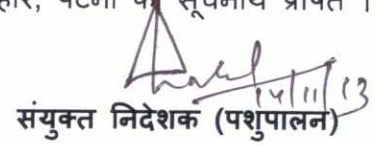 पटना को सूचनार्थ प्रेषित ।
14/11/13
संयुक्त निदेशक (पशुपालन)